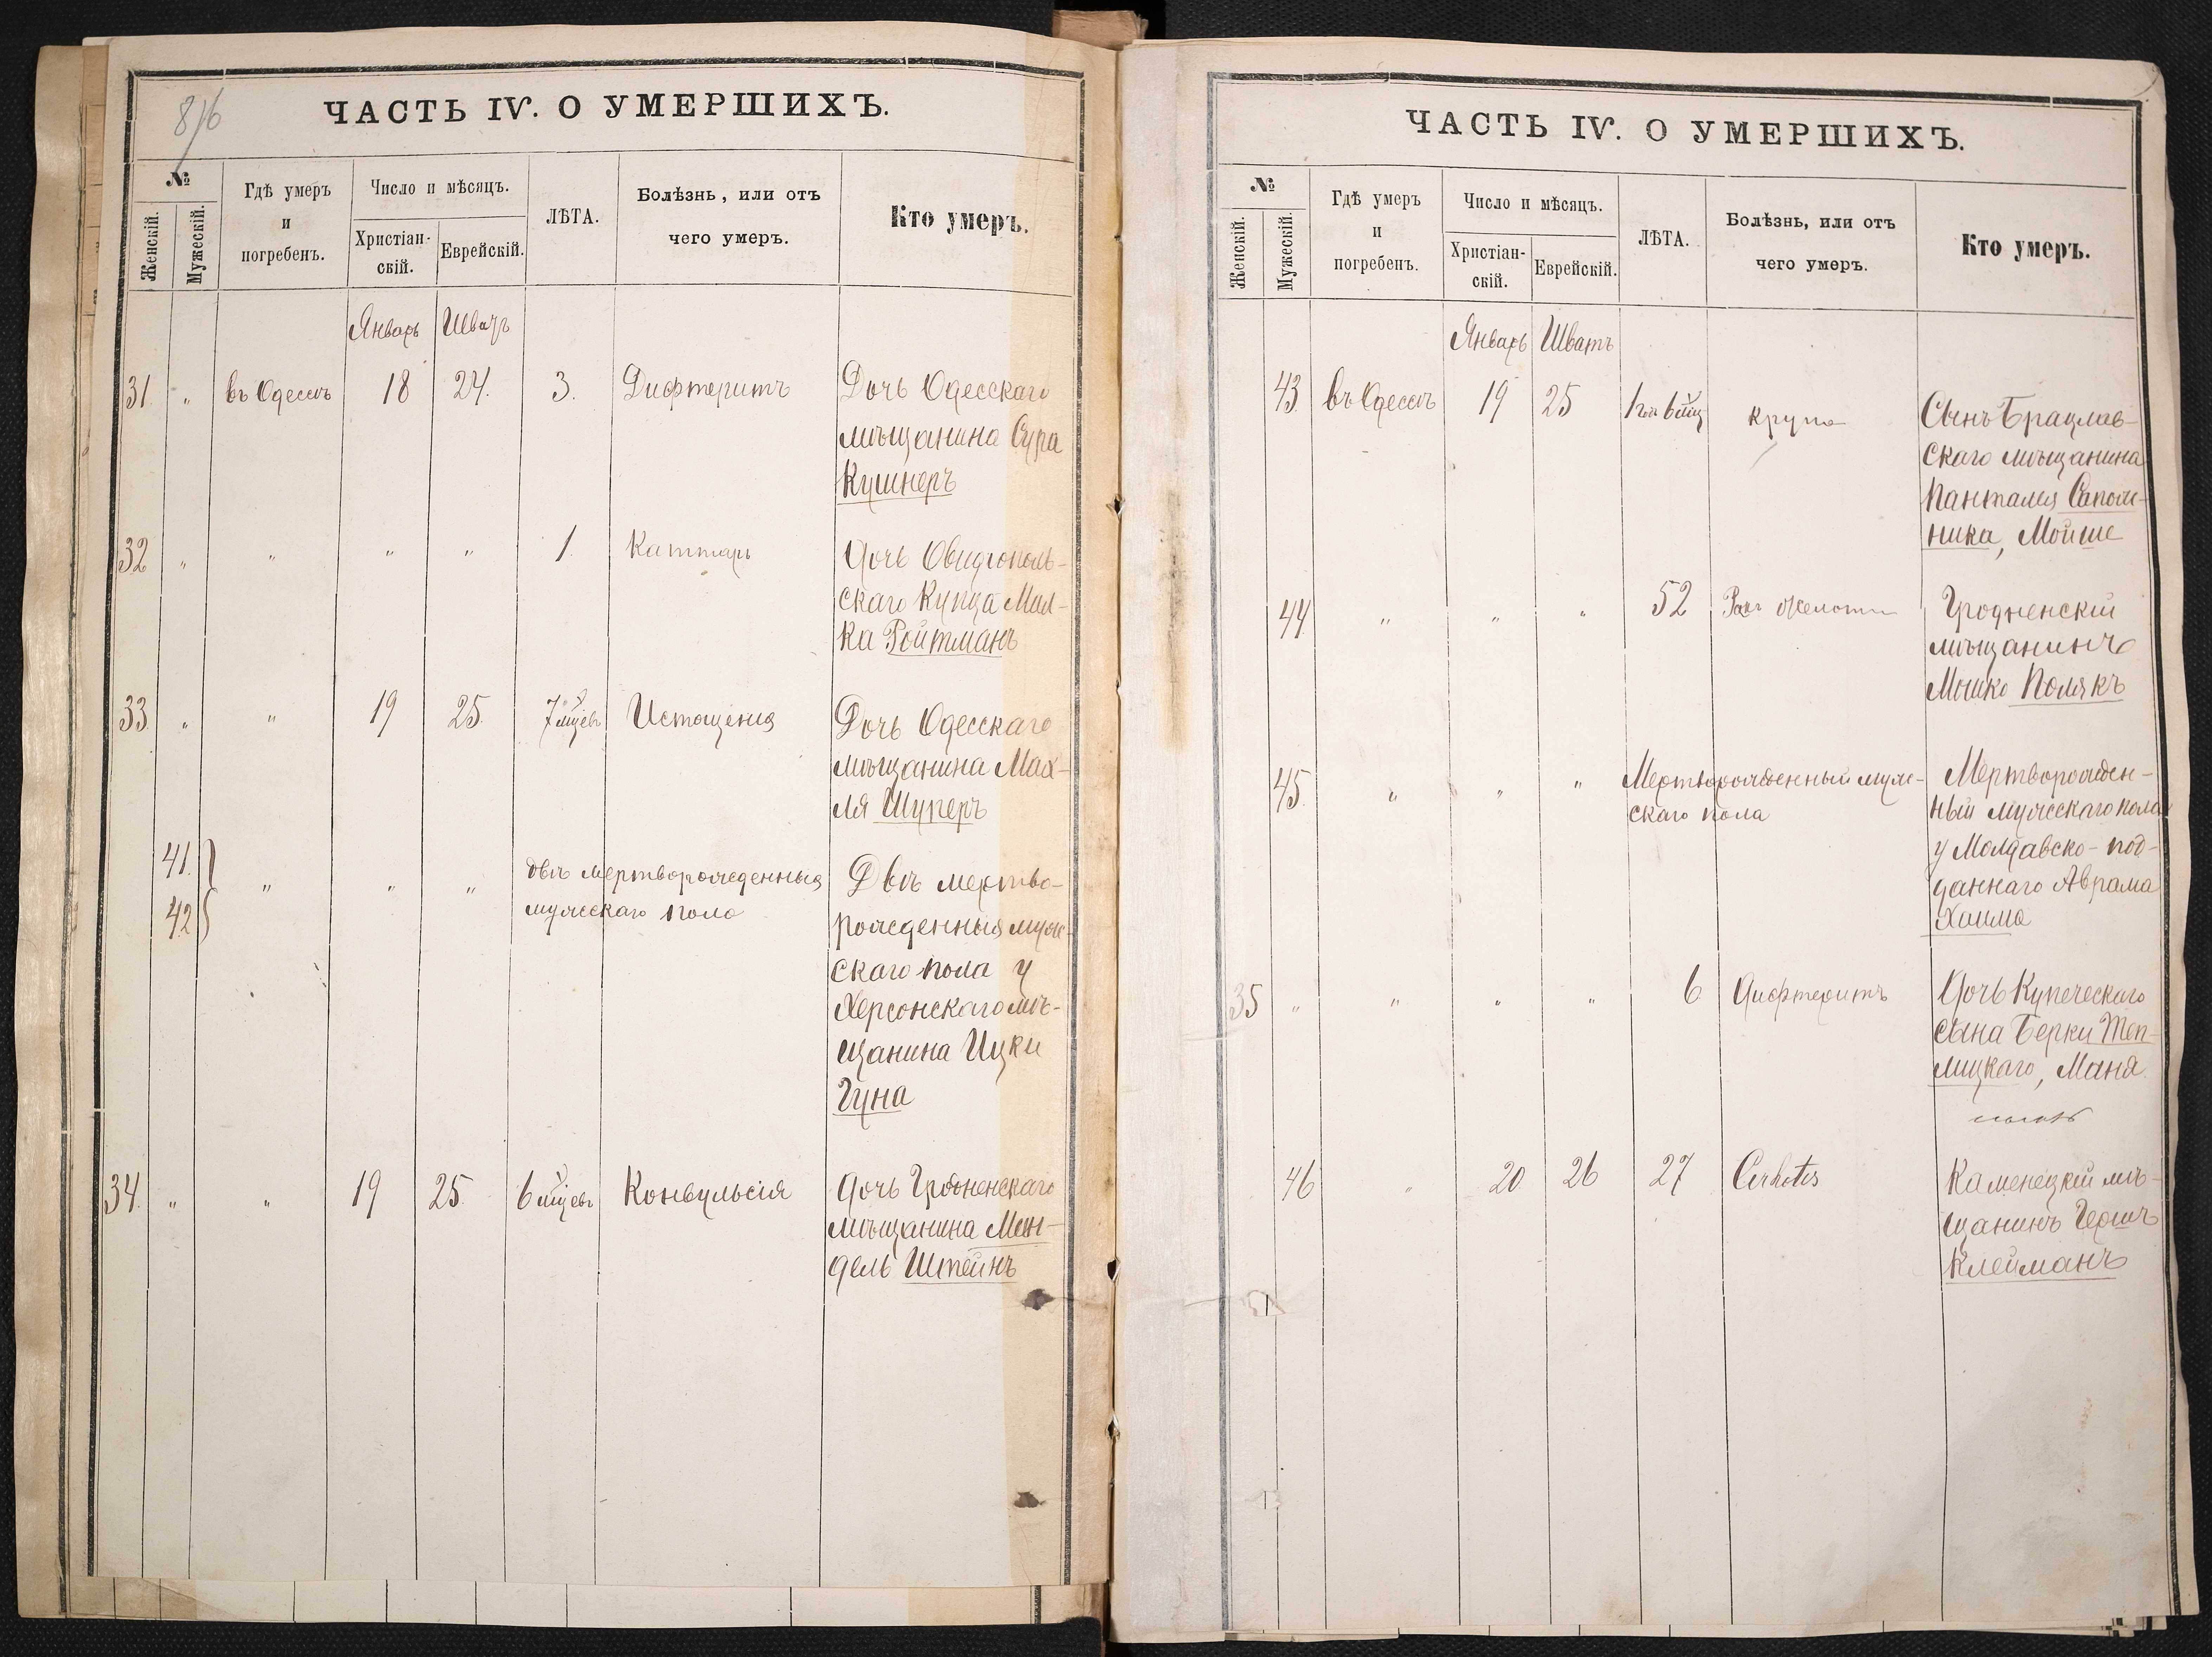 8/6
ЧАСТЬ IV. О УМЕРШИХЪ.
№
Женскій.
Мужескій.
Гдѣ умеръ
и
погребенъ.
Число и мѣсяцъ.
Христіан-
скій.
Еврейскій.
ЛѢТА.
Болѣзнь, или отъ
чего умеръ.
Кто умеръ.
Январь Шватъ
31. " въ Одессѣ 18 24. 3. Дифтеритъ Дочь Одесскаго
мѣщанина Сура
Кушнеръ
32 " " " " 1. Каттаръ Дочь Овидіополь-
скаго Купца Мал-
ка Ройтманъ
33 " " 19 25. 7 мѣцевъ Истощенія Дочь Одесскаго
мѣщанина Мах-
ля Шуперъ
41. } " " " двѣ мертворожденныя Двѣ мертво-
42 } мужескаго пола рожденныя муж-
скаго пола у
Херсонскаго мѣ-
щанина Ицки
Гуна
34. " " 19 25. 6 мѣцевъ Конвульсія Дочь Гродненскаго
мѣщанина Мен-
дель Штейнъ
ЧАСТЬ IV. О УМЕРШИХЪ.
№
Женскій.
Мужескій.
Гдѣ умеръ
и
погребенъ.
Число и мѣсяцъ.
Христіан-
скій.
Еврейскій.
ЛѢТА.
Болѣзнь, или отъ
чего умеръ.
Кто умеръ.
Январь Шватъ
43. въ Одессѣ 19 25 1 г. и 6 мѣц крупъ Сынъ Брацлав-
скаго мѣщанина
Панталея Сапож-
ника, Мойше
44 " " " 52 Ракъ Гродненскій
мѣщанинъ
Мошко Полякъ
45. " " " Мертворожденный муже- Мертворожден-
скаго пола ный мужескаго пола
у Молдавско-под-
даннаго Аврама
Хаима
35 " " " " 6 Дифтеритъ Дочь Купеческаго
сына Берки Теп-
лицкаго, Маня
46 " 20 26 27 Каменецкій мѣ-
щанинъ Гершъ
Клейманъ